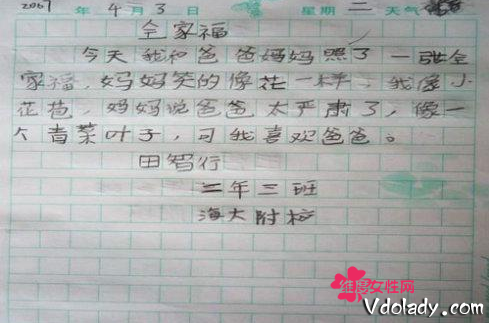 2007年4月3日 星期二 天气
全家福
今天我和爸爸妈妈照了一张全
家福，妈妈笑的像花一样，我像小
花苞，妈妈说爸爸太严肃了，像一
个青菜叶子，可我喜欢爸爸。
田智行
二年三班
海大附校
维思女性网
Vdolady.com